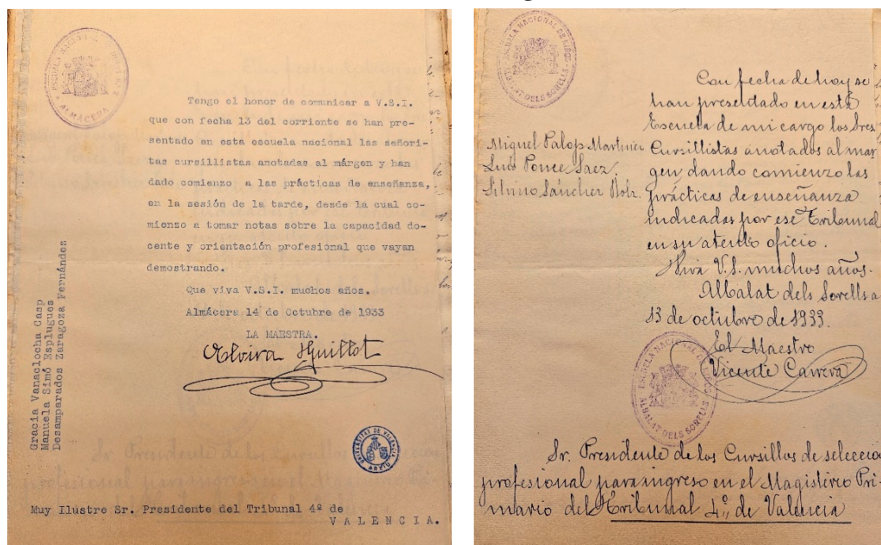 ALMÁCERA
Tengo el honor de comunicar a V.S.I.
que con fecha 13 del corriente se han pre-
sentado en esta escuela nacional las señori-
tas cursillistas anotadas al márgen y han
dado comienzo a las prácticas de enseñanza,
en la sesión de la tarde, desde la cual co-
mienzo a tomar notas sobre la capacidad do-
cente y orientación profesional que vayan
demostrando.
Que viva V.S.I. muchos años.
Almácera 14 de Octubre de 1933
LA MAESTRA.
Elvira Guillot
Gracia Vanaclocha Casp
Manuela Simó Esplugues
Desamparados Zaragoza Fernández
Muy Ilustre Sr. Presidente del Tribunal 4º de
VALENCIA.
Con fecha de hoy se
han presentado en esta
Escuela de mi cargo los Sres
Cursillistas anotados al mar
gen, dando comienzo las
prácticas de enseñanza
indicadas por ese Tribunal
en su atento oficio.
Miguel Palop Martinez
Luis Ponce Saez
Silvino Sánchez
Viva V.S. muchos años.
Albalat dels Sorells a
13 de octubre de 1933.
El Maestro
Vicente Carrera
ESCUELA NACIONAL
ALBALAT DELS SORELLS
Sr. Presidente de los Cursillos de selección
profesional para ingreso en el Magisterio Pri-
mario del Tribunal 4º, de Valencia